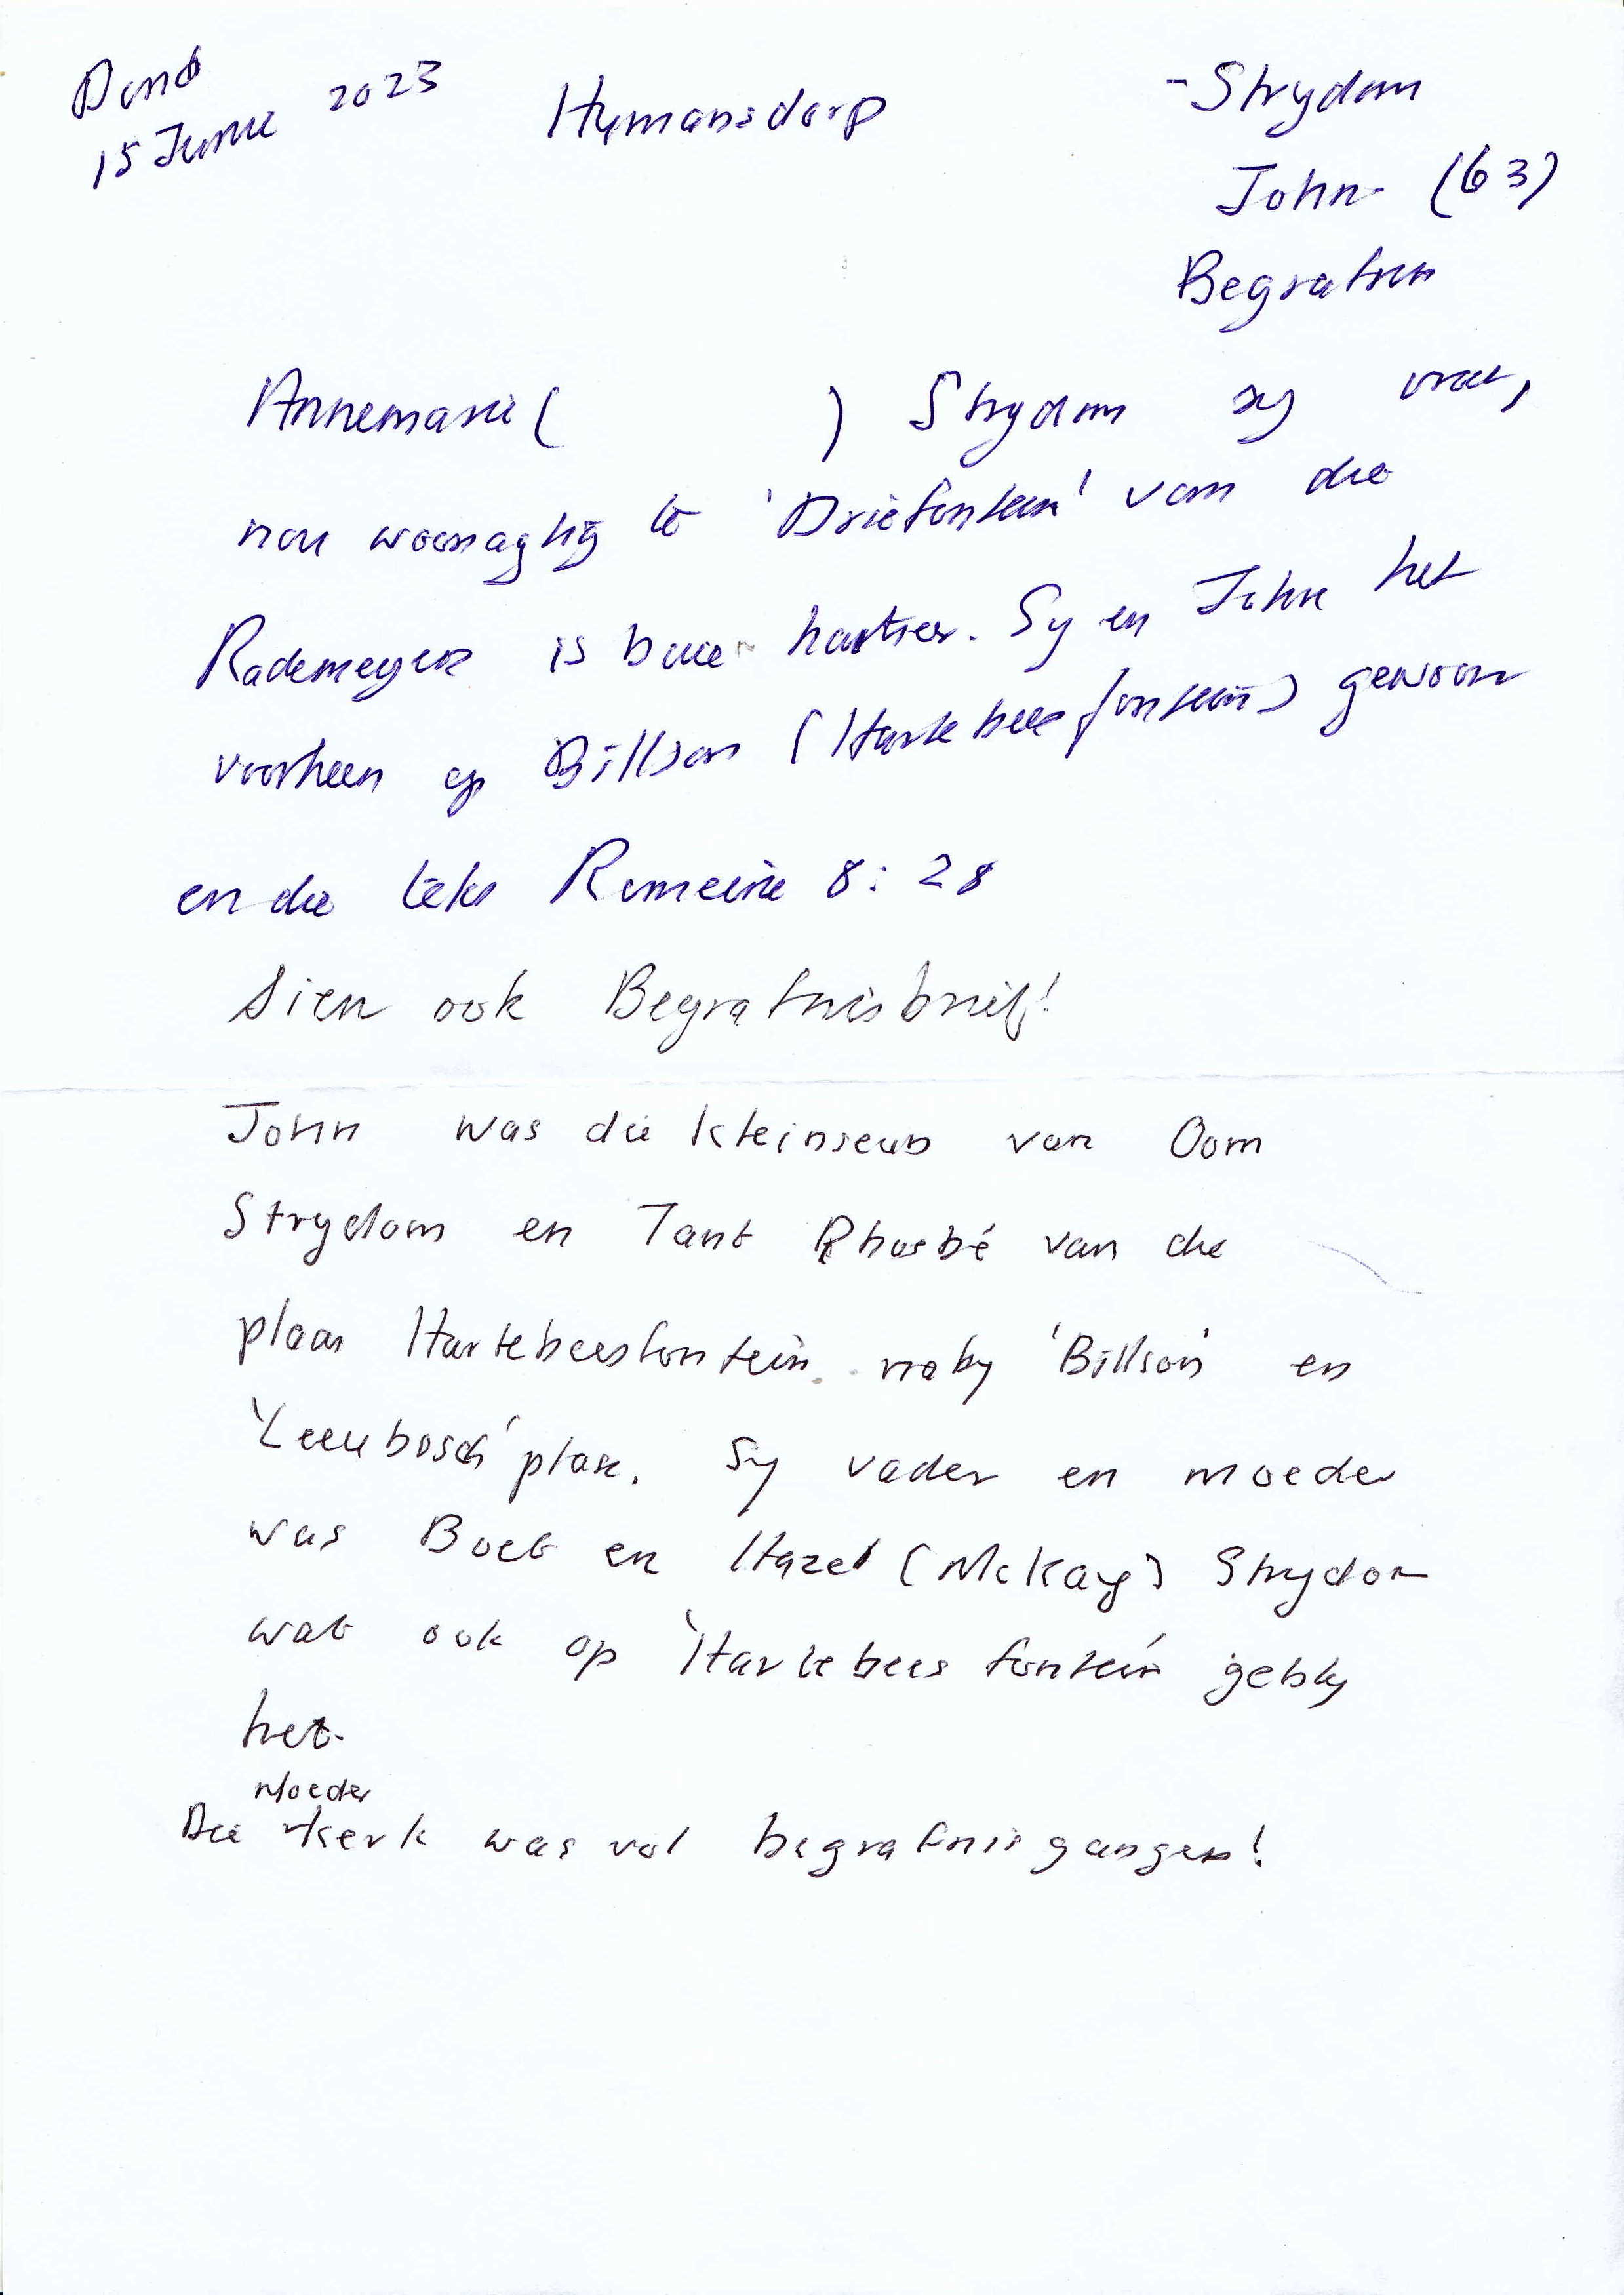 Dond
15 Junie 2023
Humansdorp
- Strydom
John (63)
Begrafnis
Annemarie ( ) Strydom sy vrou,
nou woonagtig te 'Driefontein' van die
Rademeyers is baie hartseer. Sy en John het
voorheen op Billson (Hartebeesfontein) gewoon
en die teks Romeine 8: 28
Sien ook Begrafnisbrief!
John was die kleinseun van Oom
Strydom en Tant Phoebé van die
plaas Hartebeesfontein naby 'Billson' en
'Leeubosch' plase. Sy vader en moeder
was Boet en Hazel (McKay) Strydom
wat ook op 'Hartebeesfontein' gebly
het.
Moeder
Die kerk was vol begrafnisgangers!